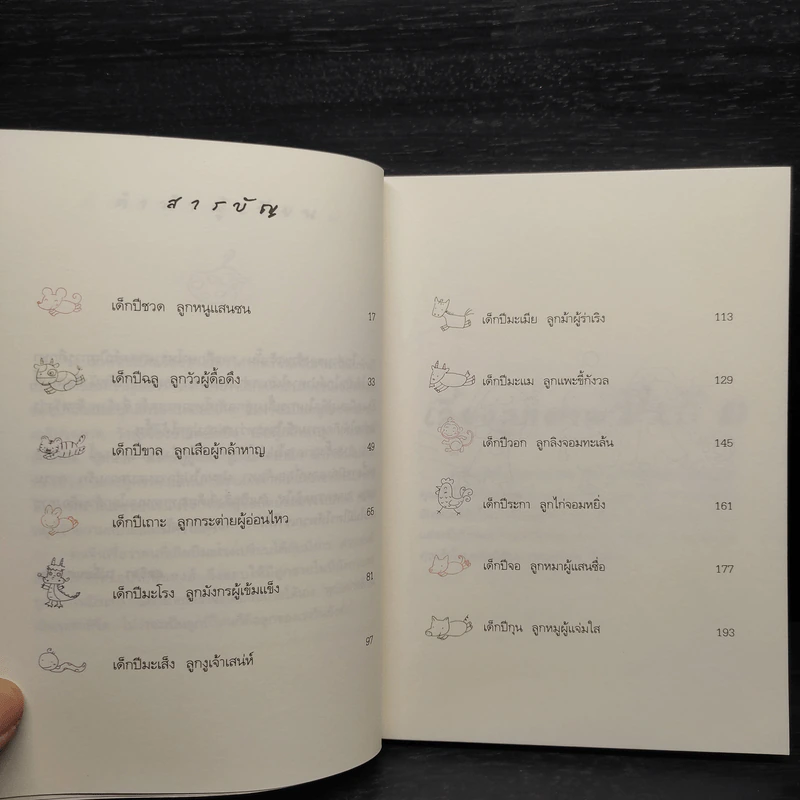 สารบัญ
เด็กปีชวด ลูกหนูแสนซน 17
เด็กปีฉลู ลูกวัวผู้ดื้อดึง 33
เด็กปีขาล ลูกเสือผู้กล้าหาญ 49
เด็กปีเถาะ ลูกกระต่ายผู้อ่อนไหว 65
เด็กปีมะโรง ลูกมังกรผู้เข้มแข็ง 81
เด็กปีมะเส็ง ลูกงูเจ้าเสน่ห์ 97
เด็กปีมะเมีย ลูกม้าผู้ร่าเริง 113
เด็กปีมะแม ลูกแพะขี้กังวล 129
เด็กปีวอก ลูกลิงจอมทะเล้น 145
เด็กปีระกา ลูกไก่จอมหยิ่ง 161
เด็กปีจอ ลูกหมาผู้แสนซื่อ 177
เด็กปีกุน ลูกหมูผู้แจ่มใส 193